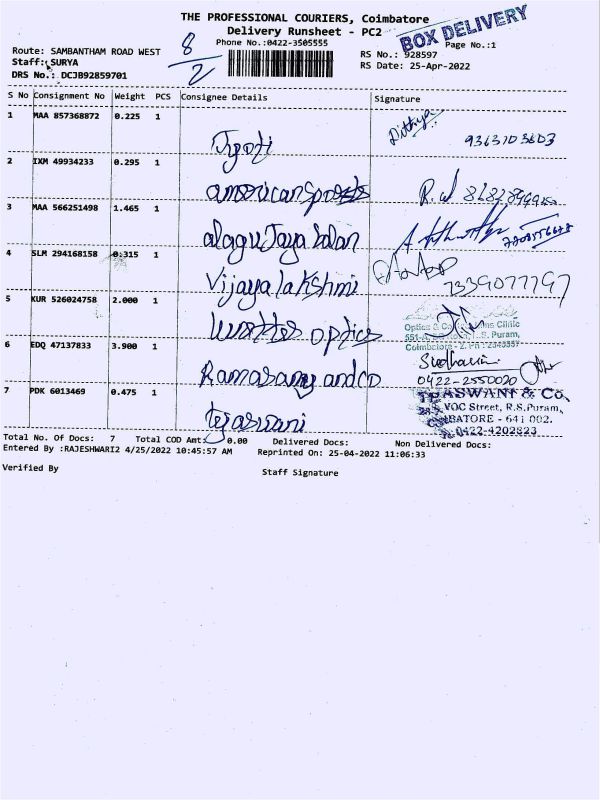 THE PROFESSIONAL COURIERS, Coimbatore
Delivery Runsheet - PC2
BOX DELIVERY
8/2
Phone No.:0422-3505555
Page No.:1
Route: SAMBANTHAM ROAD WEST
RS No.: 928597
Staff: SURYA
RS Date: 25-Apr-2022
DRS No.: DCJB92859701
S No Consignment No Weight PCS Consignee Details Signature
1 MAA 857368872 0.225 1 Jyoti
2 IXM 49934233 0.295 1 american sports
3 MAA 566251498 1.465 1 alagu Jaya balan
4 SLM 294168158 0.315 1 Vijayalakshmi 7339077797
5 KUR 526024758 2.000 1 optics
Optics & Clinic
R.S. Puram,
Coimbatore - 2.
6 EDQ 47137833 3.900 1 Ramasamy and co
0422-2550020
7 PDK 6013469 0.475 1 tejaswani
TEJASWANI & Co,
VOC Street, R.S.Puram,
COIMBATORE - 641 002.
0422-4202823
Total No. Of Docs: 7 Total COD Amt: 0.00 Delivered Docs: Non Delivered Docs:
Entered By :RAJESHWARI2 4/25/2022 10:45:57 AM Reprinted On: 25-04-2022 11:06:33
Verified By Staff Signature